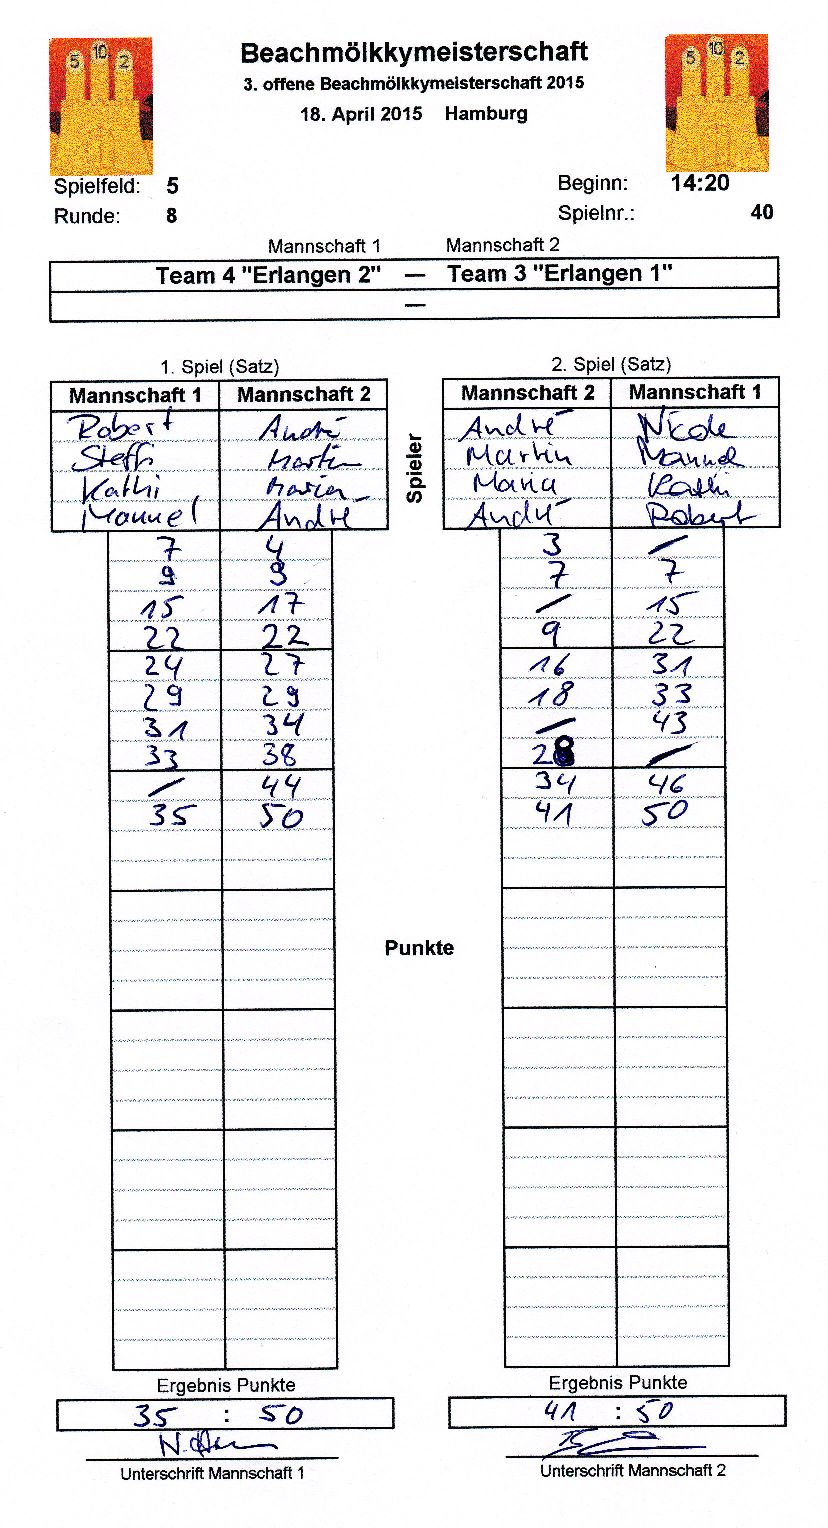 5 10 2
5 10 2
Beachmölkkymeisterschaft
3. offene Beachmölkkymeisterschaft 2015
18. April 2015 Hamburg
Spielfeld: 5 Beginn: 14:20
Runde: 8 Spielnr.: 40
Mannschaft 1 Mannschaft 2
Team 4 "Erlangen 2" — Team 3 "Erlangen 1"
—
1. Spiel (Satz) 2. Spiel (Satz)
Mannschaft 1 Mannschaft 2 Mannschaft 2 Mannschaft 1
Robert André André Nicole
Steffi Martin Martin Manuel
Kathi Maria Maria Kathi
Manuel André André Robert
Spieler
7 4 3 /
9 9 7 7
15 17 / 15
22 22 9 22
24 27 16 31
29 29 18 33
31 34 / 43
33 38 28 /
/ 44 34 46
35 50 41 50
Punkte
Ergebnis Punkte Ergebnis Punkte
35 : 50 41 : 50
Unterschrift Mannschaft 1 Unterschrift Mannschaft 2